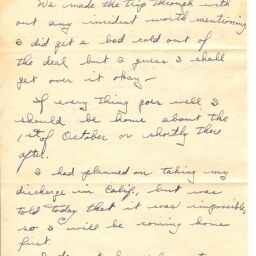 We made the trip through with
out any incident worth mentioning
I did get a bad cold out of
the deal but I guess I shall
get over it okay –
If every thing goes well I
should be home about the
1st of October or shortly there
after.
I had planned on taking my
discharge in Calif, but was
told today that it was impossible,
so I will be coming home
first.